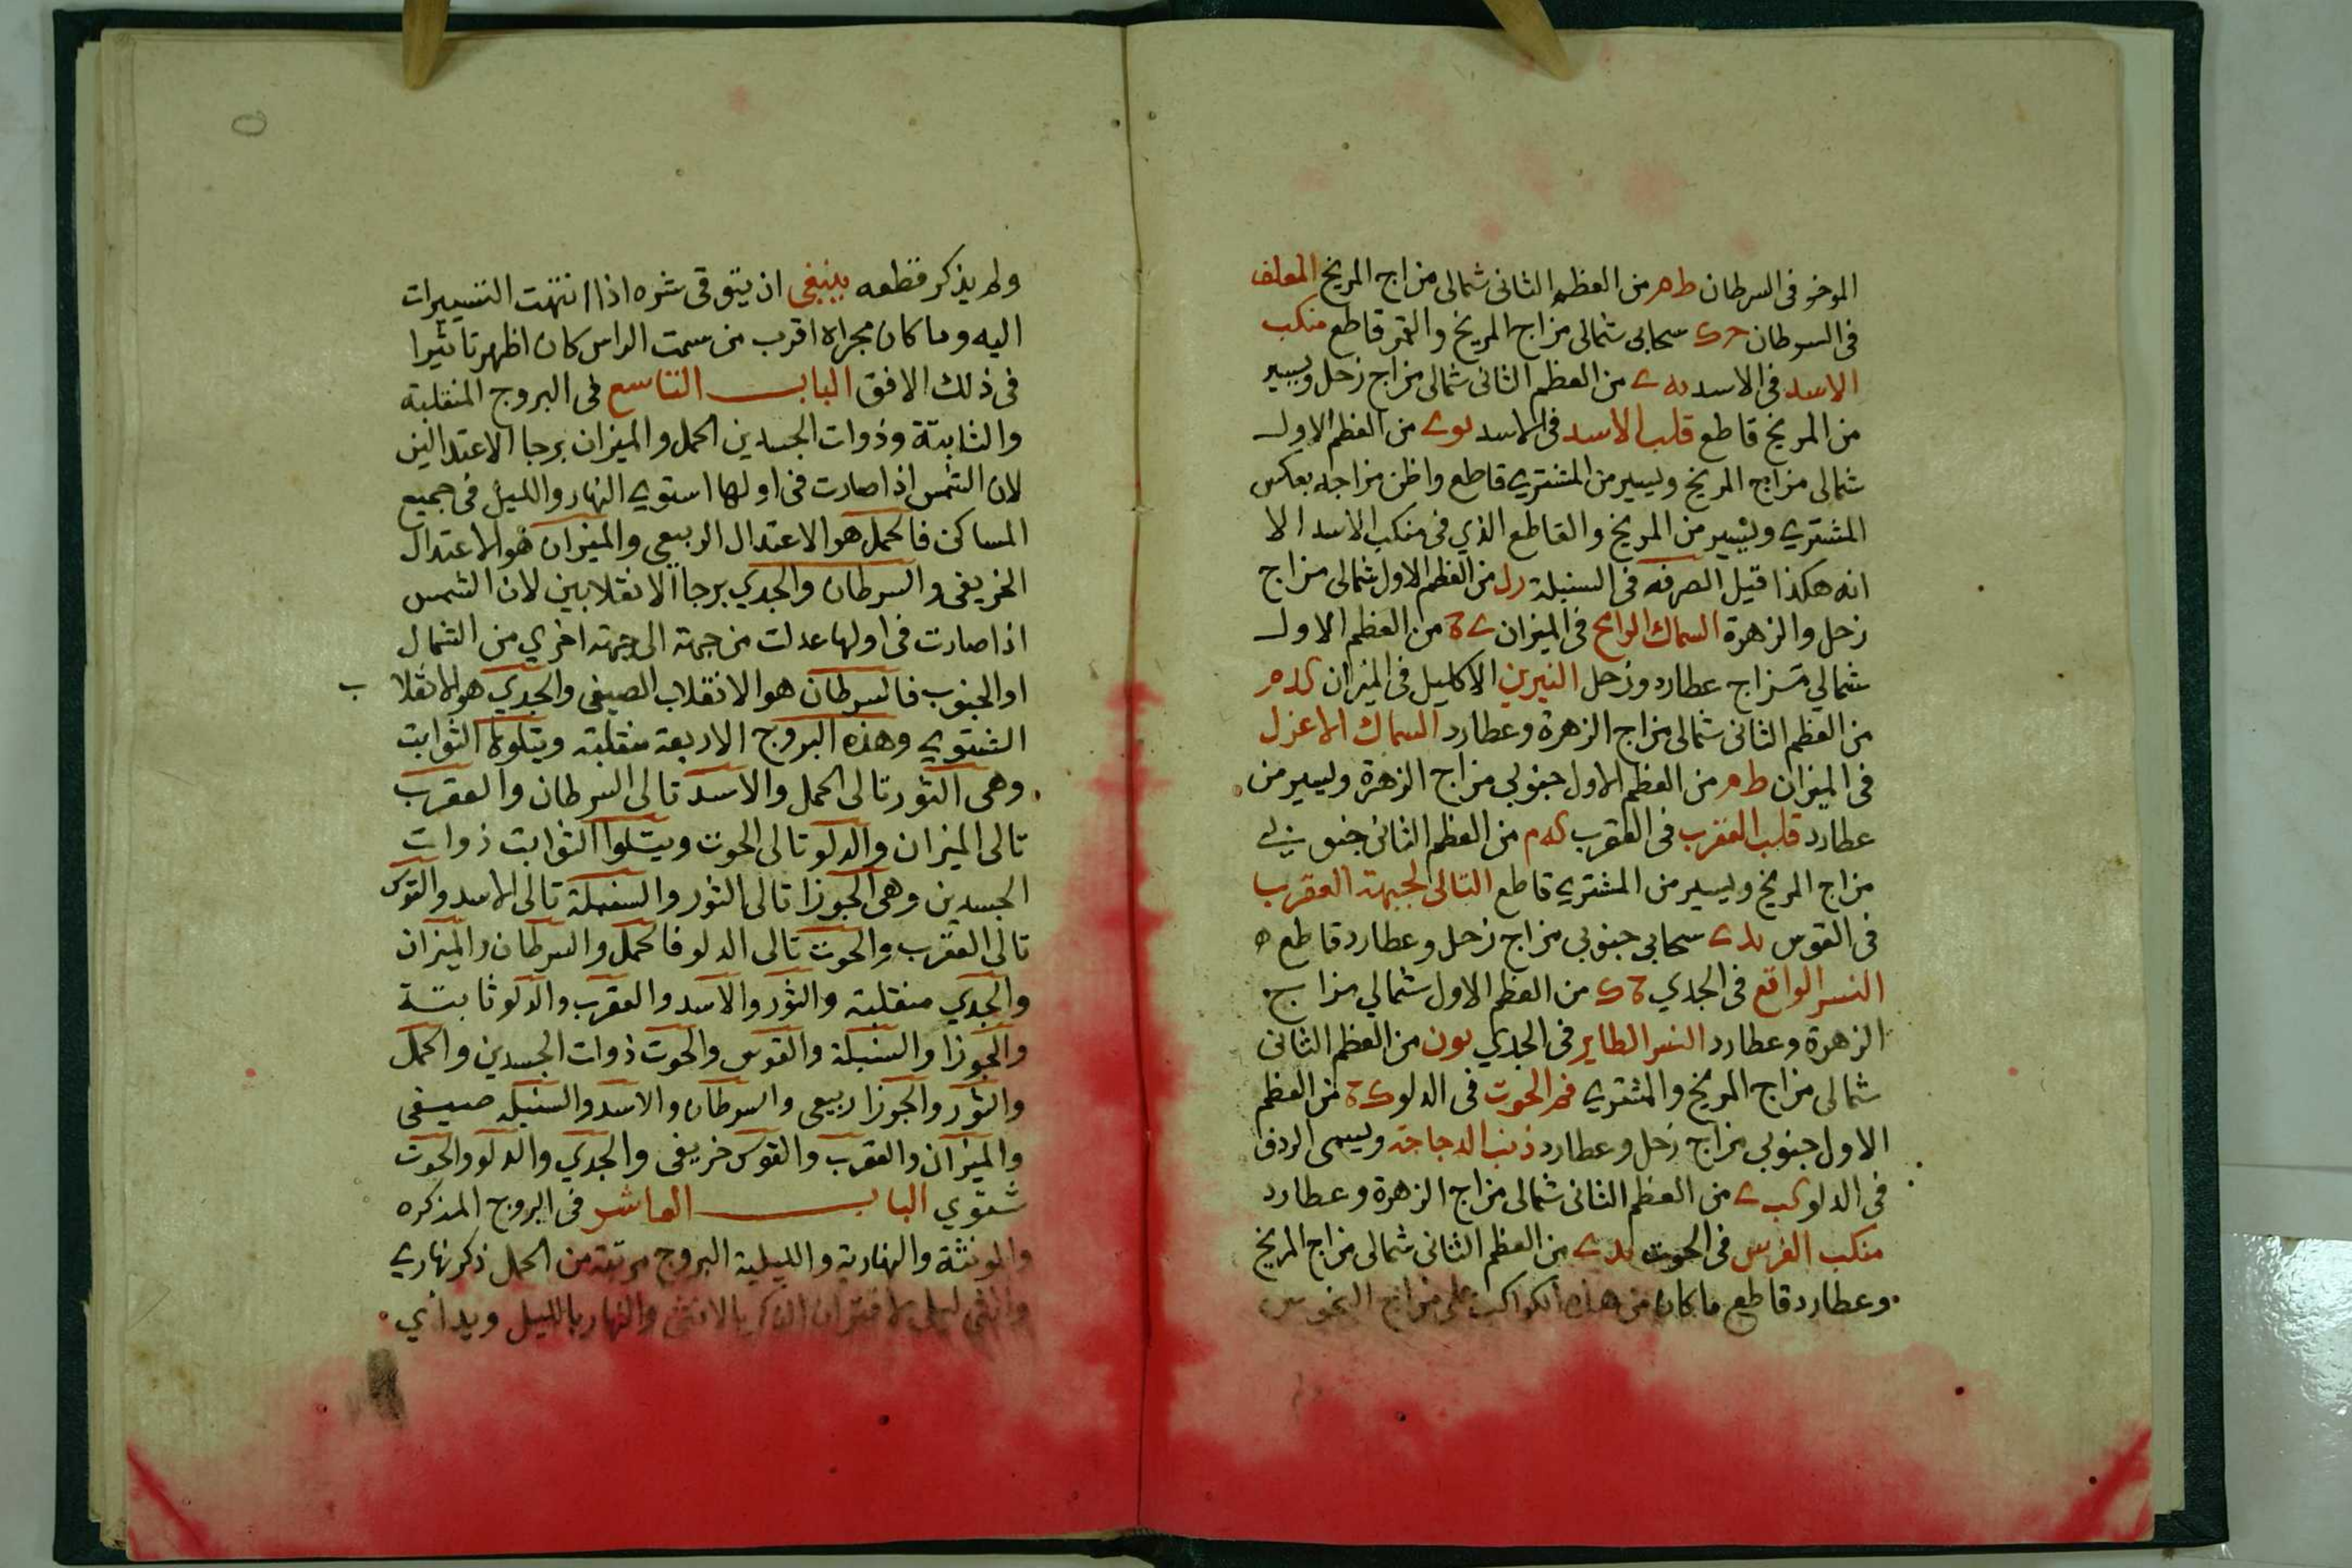 الموخر فى السرطان ط م من العظم الثانى شمالى مزاج المريخ المعلف
فى السرطان سحابى شمالى مزاج المريخ والقمر قاطع منكب
الاسد فى الاسد من العظم الثانى شمالى مزاج زحل ويسير
من المريخ قاطع قلب الاسد فى الاسد من العظم الاول
شمالى مزاج المريخ ويسير من المشترى قاطع واظن مزاجه بعكس
المشتري ويسير من المريخ والقاطع الذي فى منكب الاسد الا
انه هكذا قيل الصرفه فى السنبلة من العظم الاول شمالى مزاج
زحل والزهرة السماك الرامح فى الميزان من العظم الاول
شمالي مزاج عطارد وزحل النيرين الاكليل فى الميزان
من العظم الثانى شمالى مزاج الزهرة وعطارد السماك الاعزل
فى الميزان ط م من العظم الاول جنوبى مزاج الزهرة ويسير من
عطارد قلب العقرب فى العقرب من العظم الثانى جنوبى
مزاج المريخ ويسير من المشترى قاطع التالى لجبهة العقرب
فى القوس سحابى جنوبى مزاج زحل وعطارد قاطع ه
النسر الواقع فى الجدي من العظم الاول شمالي مزاج
الزهرة وعطارد النسر الطاير فى الجدي من العظم الثانى
شمالى مزاج المريخ والمشترى فم الحوت فى الدلو من العظم
الاول جنوبى مزاج زحل وعطارد ذنب الدجاجة ويسمى الردف
فى الدلو من العظم الثانى شمالى مزاج الزهرة وعطارد
منكب الفرس فى الحوت من العظم الثانى شمالى مزاج المريخ
وعطارد قاطع ما كان من هذه الكواكب على مزاج النحوس
ولم يذكر قطعه ينبغى ان يتوقى شره اذا انتهت التسييرات
اليه وما كان مجراه اقرب من سمت الراس كان اظهر تاثيرا
فى ذلك الافق الباب التاسع فى البروج المنقلبة
والثابتة وذوات الجسدين الحمل والميزان برجا الاعتدالين
لان الشمس اذا صارت فى اولها استوى النهار والليل فى جميع
المساكن فالحمل هو الاعتدال الربيعى والميزان هو الاعتدال
الخريفى والسرطان والجدي برجا الانقلابين لان الشمس
اذا صارت فى اولها عدلت من جهة الى جهة اخري من الشمال
او الجنوب فالسرطان هو الانقلاب الصيفى والجدي هو الانقلا ب
الشتوي وهذه البروج الاربعة منقلبة ويتلوها الثوابت
وهى الثور تالى الحمل والاسد تالى السرطان والعقرب
تالى الميزان والدلو تالى الحوت ويتلوا الثوابت ذوات
الجسدين وهى الجوزا تالى الثور والسنبلة تالى الاسد والقوس
تالى العقرب والحوت تالى الدلو فالحمل والسرطان والميزان
والجدي منقلبة والثور والاسد والعقرب والدلو ثابتة
والجوزا والسنبلة والقوس والحوت ذوات الجسدين والحمل
والثور والجوزا ربيعى والسرطان والاسد والسنبله صيفى
والميزان والعقرب والقوس خريفى والجدي والدلو والحوت
شتوي الباب العاشر فى البروج المذكره
والمونثة والنهارية والليلية البروج مرتبة من الحمل ذكر نهاري
وانثى ليلى لاقتران الذكر بالانثى والنهار بالليل